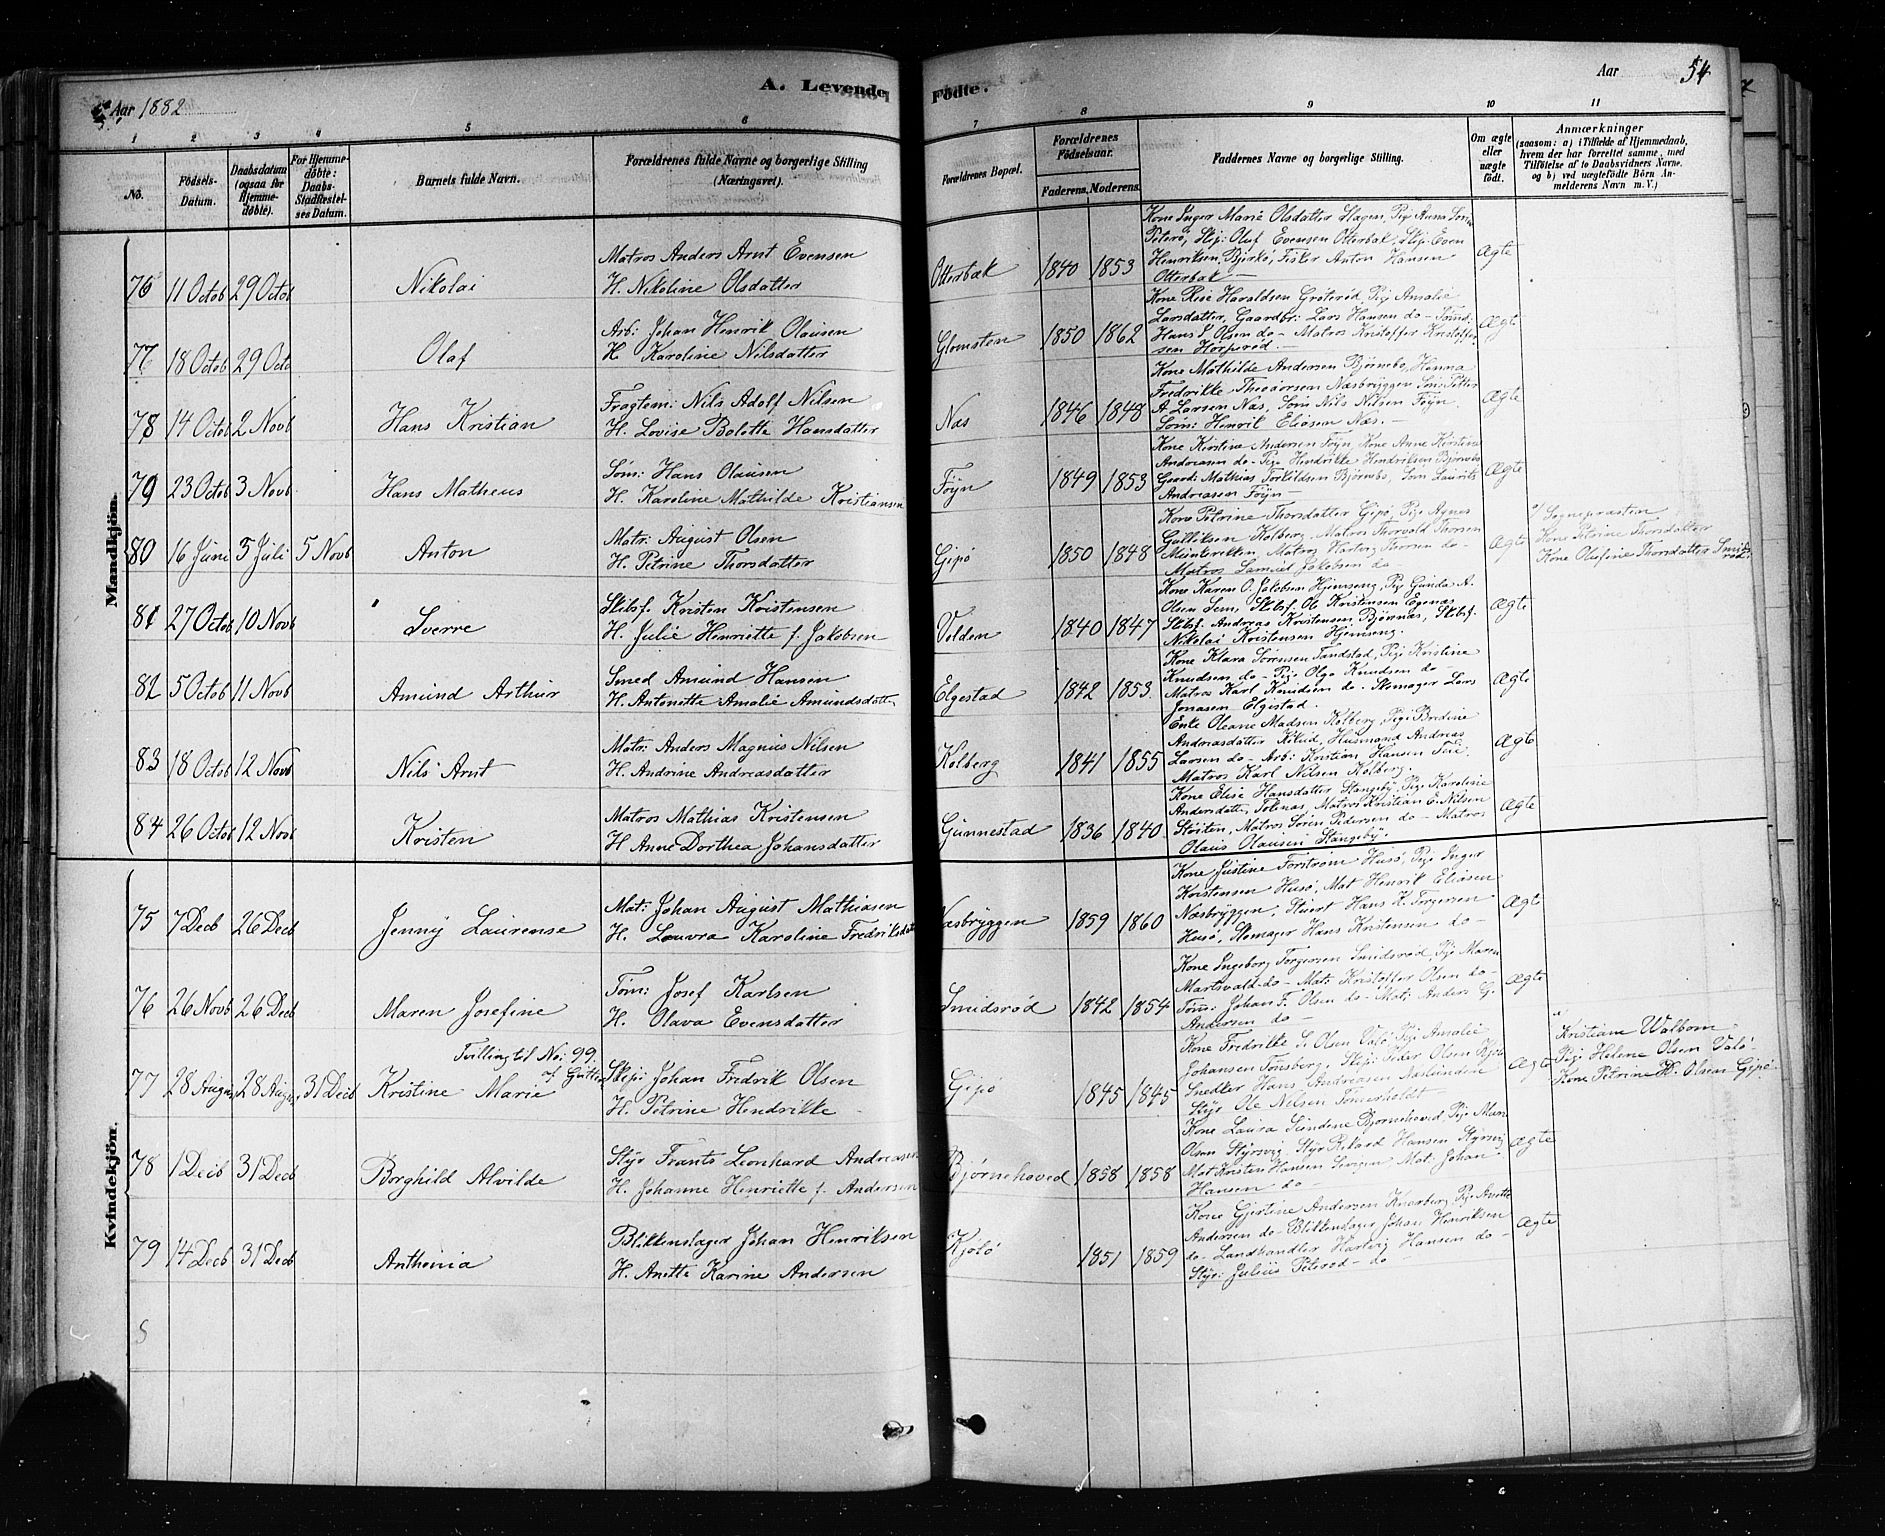 Aar 1882
A. Levende Födte.
Aar
54
1 2 3 4 5 6 7 8 9 10 11
No.
Födsels-Datum.
Daabsdatum (ogsaa for Hjemmedöbte).
For Hjemmedöbte: Daabs-Stadfæstelses Datum.
Barnets fulde Navn.
Forældrenes fulde Navne og borgerlige Stilling (Næringsvei).
Forældrenes Bopæl.
Forældrenes Födselsaar.
Faderens. Moderens.
Faddernes Navne og borgerlige Stilling.
Om ægte eller uægte födt.
Anmærkninger
(saasom: a) i Tilfælde af Hjemmedaab,
hvem der har forrettet samme, med
Tilföielse af to Daabsvidners Navne,
og b) ved uægtefödte Börn Anmelderens Navn m. V.)
Mandkjön.
76 11 Octob 29 Octob Nikolai
Matros Anders Arnt Evensen
H. Nikoline Olsdatter
Otterbæk 1840 1853
Kone Inger Marie Olsdatter Hagen, Pige Anna Sørine
Peterø, Skip: Oluf Evensen Otterbæk, Skip: Even
Henriksen Bjerkø, Fisker Anton Hansen
Otterbæk
Ægte
77 18 Octob 29 Octo Olaf
Arb: Johan Henrik Olausen
H. Karoline Nilsdatter
Glomsten 1850 1862
Kone Rise Haraldsen Grøterød, Pige Amalie
Larsdatter, Gaardbr: Lars Hansen do - Sømd:
Hans L Olsen do - Matros Kristoffer Kristoffer-
sen Horperød.
Ægte
78 14 Octob 2 Novb Hans Kristian
Fragtem: Nils Adolf Nilsen
H. Lovise Bolette Hansdatter
Næs 1846 1848
Kone Mathilde Andersen Bjørnebo, Hanna
Fredrikke Theodorsen Næsbryggen Søm: Petter
A. Larsen Næs, Søm Nils Nilsen Føyn.
Søm: Henrik Eliasen Næs.
Ægte
79 23 Octob 3 Novb Hans Matheus
Søm: Hans Olausen
H. Karoline Mathilde Kristiansen
Føyn 1849 1853
Kone Kirstine Andersen Føyn, Kone Anne Kirstine
Andreasen do - Pige Hendrikke Hendriksen Bjørnebo
Gaard: Mathias Torkildsen Bjørnebo, Søm Laurits
Andreasen Føyn
Ægte
80 16 Juni 5 Juli 5 Novb Anton
Matr: August Olsen
H. Petrine Thorsdatter
Gipø 1850 1848
Kone Petrine Thorsdatter Gipø, Pige Agnes
Gulliksen Kolberg, Matros Thorvald Thorsen
Munterekken, Matros Hartvig Thorsen do
Matros Samuel Jakobsen do
Ægte
a/ Sognepræsten
Kone Petrine Thorsdatter
Kone Olufine Thorsdatter Smids-
rød.
81 27 Octob 10 Novb Sverre
Skibsf. Kristen Kristensen
H. Julie Henriette f. Jakobsen
Volden 1840 1847
Kone Karen O. Jakobsen Hjemseng, Pige Gunda A.
Olsen Sem, Skibsf. Ole Kristensen Egenæs
Skibsf. Andreas Kristensen Bjørnæs, Skibsf.
Nikolai Kristensen Hjemseng.
Ægte
82 5 Octob 11 Novb Amund Arthur
Smed Amund Hansen
H. Antonette Amalie Amundsdatter
Elgestad 1842 1853
Kone Klara Sørensen Tandstad, Pige Kristine
Knudsen do - Pige Olga Knudsen do -
Matros Karl Knudsen do - Skomager Lars
Jonasen Elgestad.
Ægte
83 18 Octob 12 Novb Nils Arnt
Matr: Anders Magnus Nilsen
H. Andrine Andreasdatter
Kolberg 1841 1855
Enke Oleane Madsen Kolberg, Pige Bredine
Andreasdatter Kilud, Husmand Andreas
Larsen do - Arb: Kristian Hansen Teie
Matros Karl Nilsen Kolberg.
Ægte
84 26 Octob 12 Novb Kristen
Matros Mathias Kristensen
H. Anne Dorthea Johansdatter
Gunnestad 1836 1840
Kone Elise Hansdatter Stangeby, Pige Karoline
Andersdatter Tolenæs, Matros Kristian E. Nilsen
Støiten, Matros Søren Pedersen do - Matros
Olaus Olausen Stangeby.
Ægte
Kvindekjön.
75 7 Decb 26 Decb Jenny Laurense
Mat: Johan August Mathiasen
H. Louvra Karoline Fredriksdatt
Næsbryggen 1859 1860
Kone Justine Forstrøm Husø, Pige Inger
Kristensen Husø, Mat Henrik Eliasen
Næsbryggen, Stuert Hans K. Torgersen
Husø, Skomager Hans Kristensen do
Ægte
76 26 Novb 26 Decb Maren Josefine
Tøm: Josef Karlsen
H. Olava Evensdatter
Smidsrød 1842 1854
Kone Ingeborg Torgersen Smidsrød, Pige Maren
Martsvald do - Mat: Kristoffer Olsen do -
Tøm: Johan F. Olsen do - Mat: Anders G.
Andersen do -
Ægte
Tvilling til No: 99.
af Gutter
77 28 Augus 28 Augu. 31 Decb Kristine Marie
Skip: Johan Fredrik Olsen
H. Petrine Hendrikke
Gipø 1845 1845
Kone Fredrikke L Olsen Valø, Pige Amalie
Johansen Tønsberg, Skip: Peder Olsen Kjøl
Snedker Hans Andreasen Næslundin
Styr Ole Nilsen Sømerholdt
Ægte
a/
Kristiane Walbom
Pige Helene Olsen Valø
Kone Petrine H. Olsen Gipø
78 1 Decb 31 Decb Borghild Alvilde
Styr Frants Leonhard Andreasen
H. Johanne Henriette f. Andersen
Bjørnehoved 1858 1858
Kone Laura Sundene Bjørnehoved, Pige Maren
Olsen Styrsvig, Styr Rikard Hansen Styrsvig
Mat Kristen Hansen Sevigen Mat: Johan
Hansen do
Ægte
79 14 Decb 31 Decb Anthonia
Blikkenslager Johan Henriksen
H. Anette Karine Andersen
KjøLø 1851 1859
Kone Gjertine Andersen Knarberg, Pige Anette
Andersen do - Blikkenslager Johan Henriksen
do - Landhandler Hartvig Hansen do -
Styr: Julius Peterød - do
Ægte